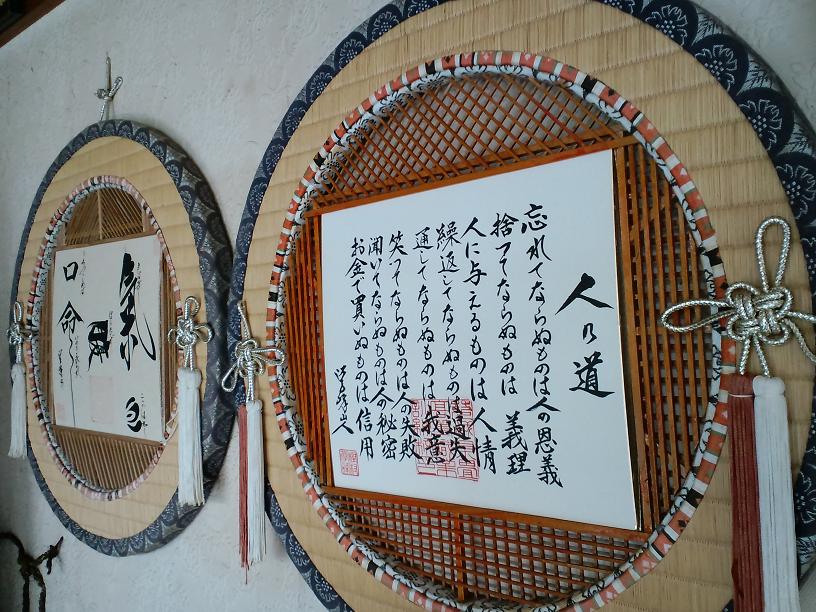 人の道
忘れてならぬものは人の恩義
捨ててならぬものは 義理
人に与えるものは人情
繰返してならぬものは過失
通してならぬものは我意
笑ってならぬものは人の失敗
聞いてならぬものは人の秘密
お金で買いぬものは信用
氣
命
口